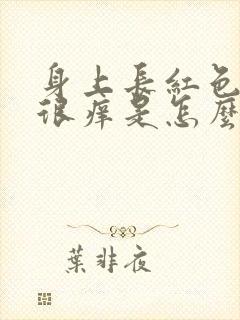 身上長紅色
很癢是怎麼
葉非夜